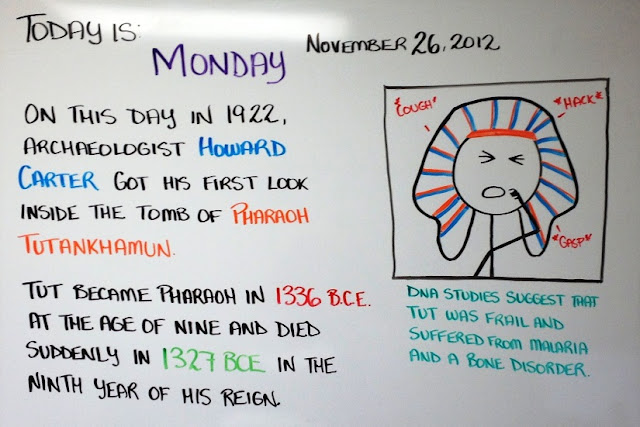 TODAY IS:
MONDAY
NOVEMBER 26, 2012
ON THIS DAY IN 1922,
ARCHAEOLOGIST HOWARD
CARTER GOT HIS FIRST LOOK
INSIDE THE TOMB OF PHARAOH
TUTANKHAMUN.
TUT BECAME PHARAOH IN 1336 B.C.E.
AT THE AGE OF NINE AND DIED
SUDDENLY IN 1327 BCE IN THE
NINTH YEAR OF HIS REIGN.
*COUGH*
*HACK*
*GASP*
DNA STUDIES SUGGEST THAT
TUT WAS FRAIL AND
SUFFERED FROM MALARIA
AND A BONE DISORDER.